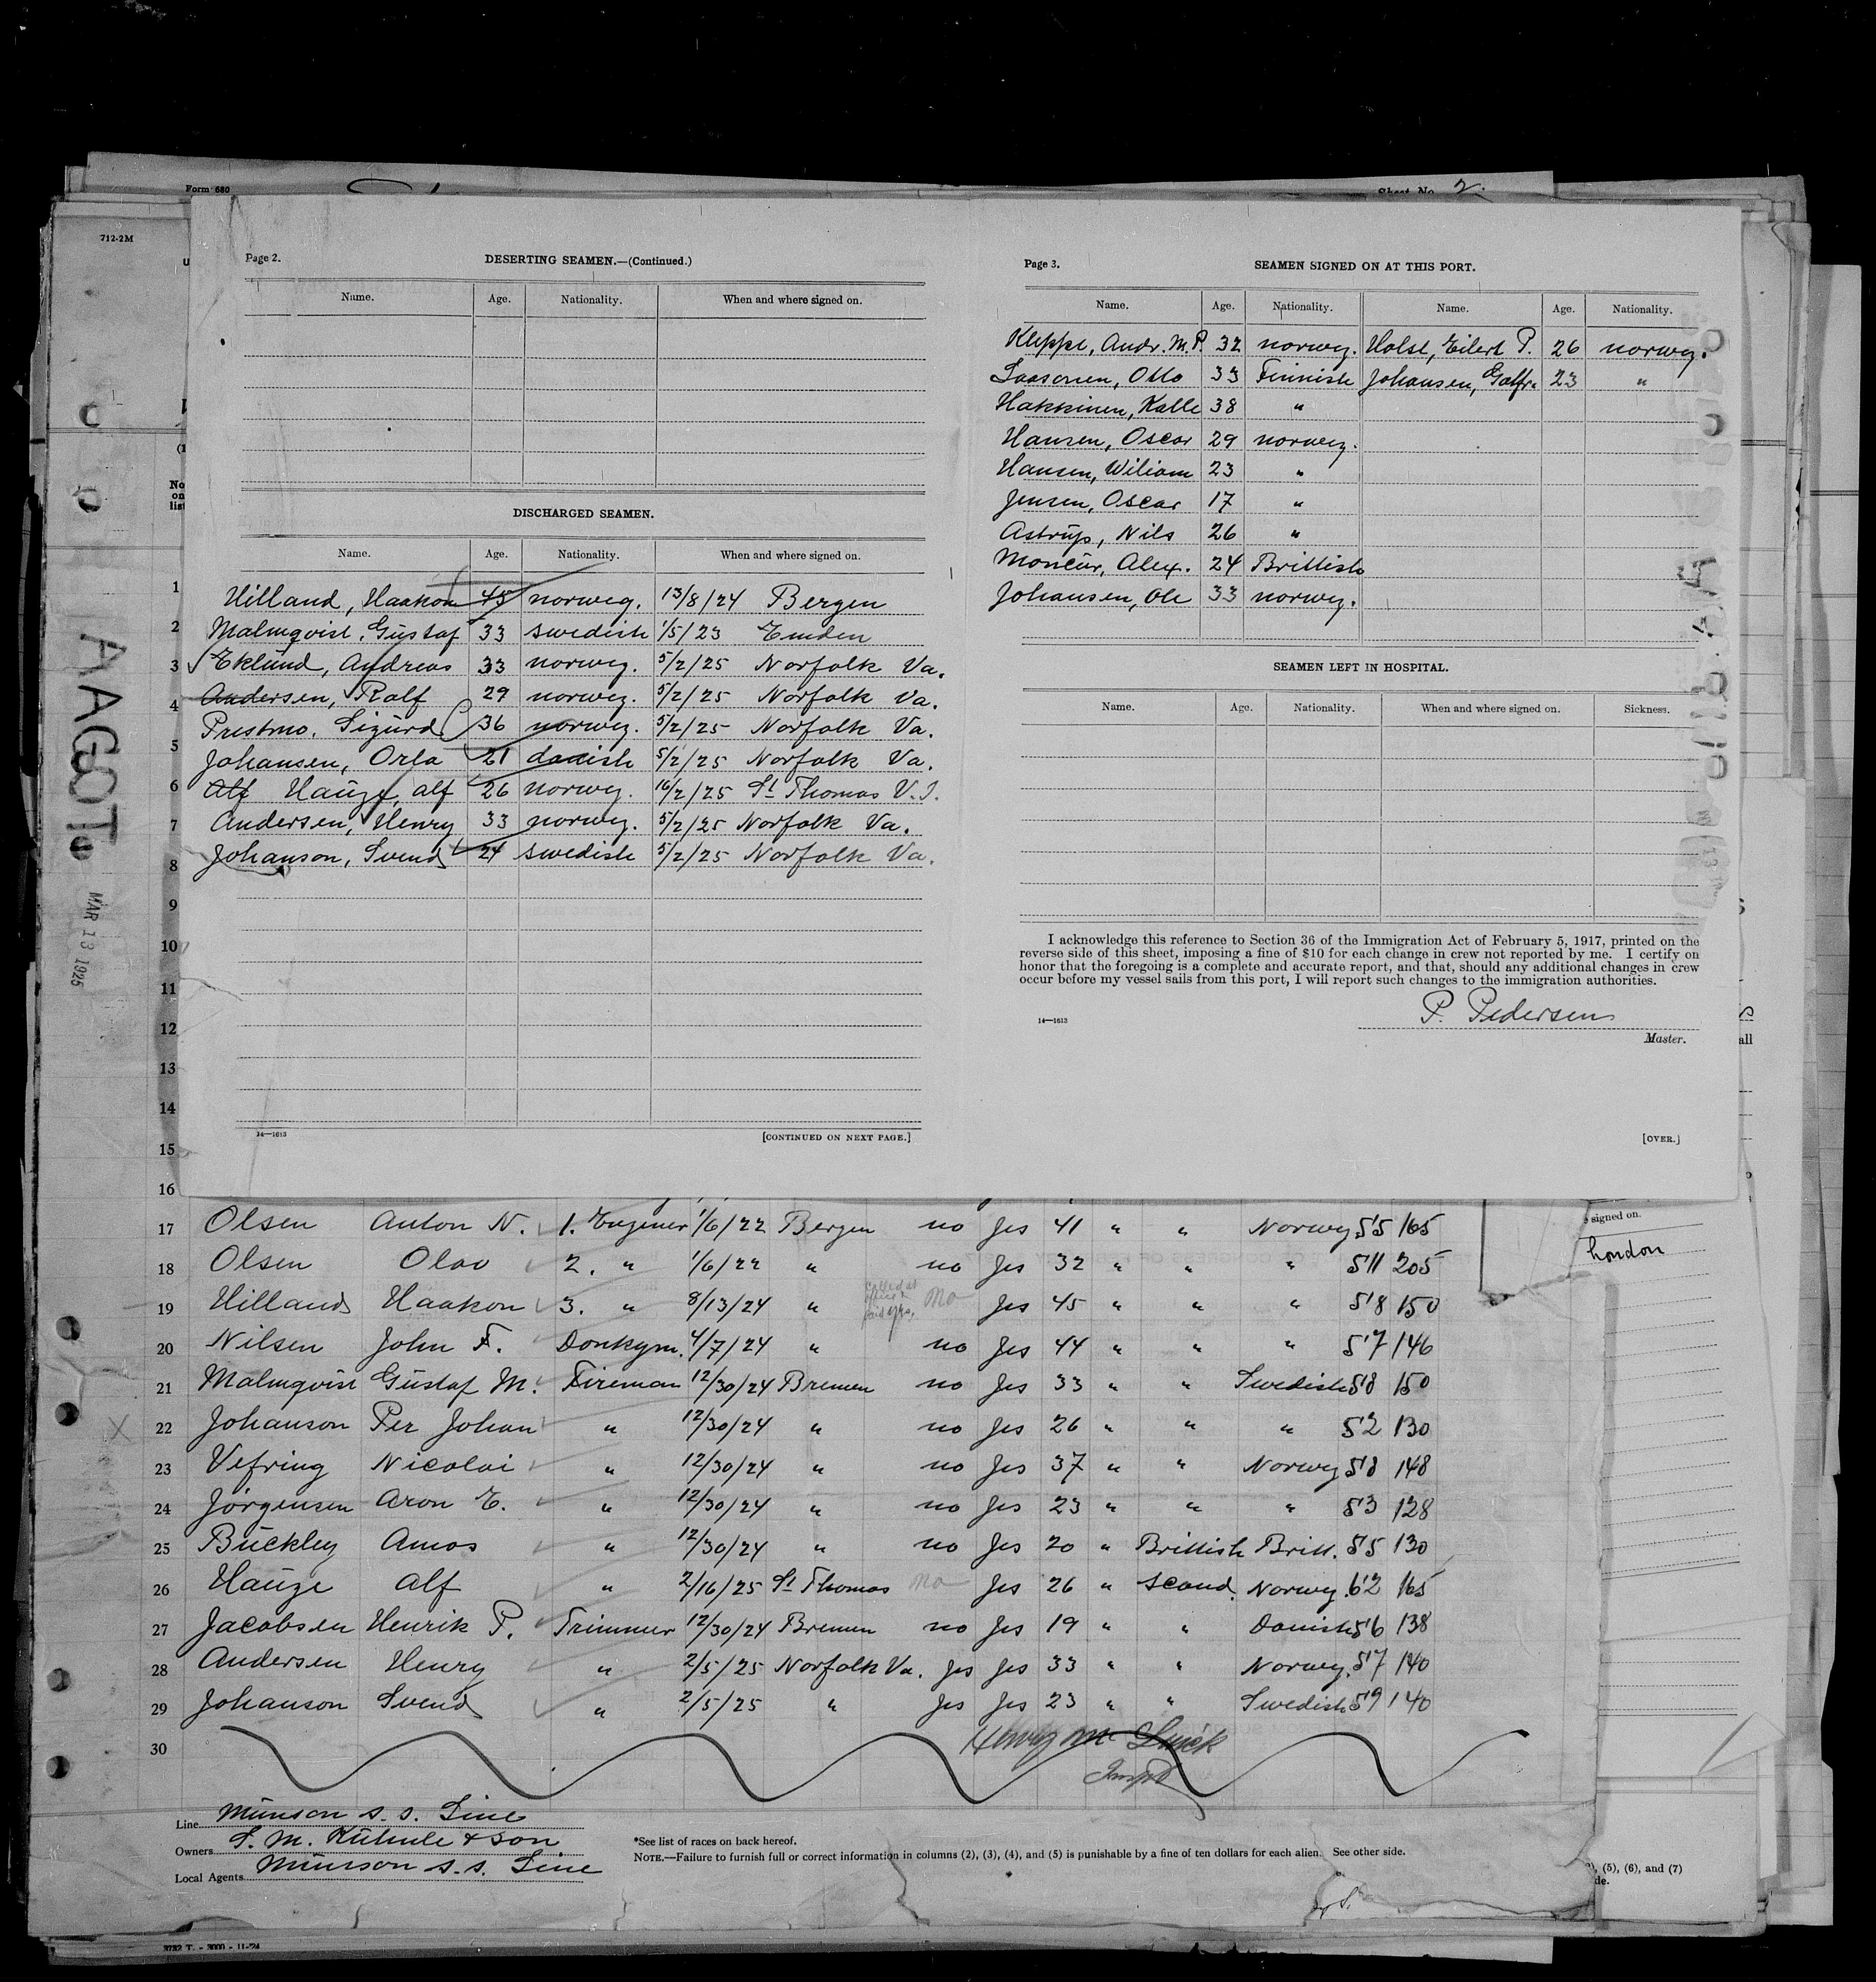 Form 680
Sheet No. 2.
712-2M
Page 2. DESERTING SEAMEN.—(Continued.)
Name. Age. Nationality. When and where signed on.
DISCHARGED SEAMEN.
Name. Age. Nationality. When and where signed on.
Hilland, Haakon 45 norweg. 13/8/24 Bergen
Malmqvist, Gustaf 33 swedish 1/5/23 Emden
Eklund, Andreas 33 norweg. 5/2/25 Norfolk Va.
Andersen, Ralf 29 norweg. 5/2/25 Norfolk Va.
Prestmo, Sigurd 36 norweg. 5/2/25 Norfolk Va.
Johansen, Orla 21 danish 5/2/25 Norfolk Va.
Alf Hauge, alf 26 norweg. 16/2/25 St Thomas V.I.
Andersen, Henry 33 norweg. 5/2/25 Norfolk Va.
Johanson, Svend 24 swedish 5/2/25 Norfolk Va.
14—1613
[CONTINUED ON NEXT PAGE.]
Page 3. SEAMEN SIGNED ON AT THIS PORT.
Name. Age. Nationality. Name. Age. Nationality.
Kleppe, Andr. M.P. 32 norweg. Holst, Eilert P. 26 norweg.
Laasonen, Otto 33 Finnish Johansen, 23 "
Hakkinen, Kalle 38 "
Hansen, Oscar 29 norweg.
Hansen, Wiliam 23 "
Jensen, Oscar 17 "
Astrup, Nils 26 "
Moncur, Alex. 24 Brittish
Johansen, Ole 33 norweg.
SEAMEN LEFT IN HOSPITAL.
Name. Age. Nationality. When and where signed on. Sickness.
I acknowledge this reference to Section 36 of the Immigration Act of February 5, 1917, printed on the
reverse side of this sheet, imposing a fine of $10 for each change in crew not reported by me. I certify on
honor that the foregoing is a complete and accurate report, and that, should any additional changes in crew
occur before my vessel sails from this port, I will report such changes to the immigration authorities.
P. Pedersen
14—1613
Master.
[OVER.]
AAGOT
MAR 13 1925
No
on
list
1
2
3
4
5
6
7
8
9
10
11
12
13
14
15
16
17 Olsen Anton N. 1. Engener 1/6/22 Bergen no Jes 41 " " Norweg 5'5 165
18 Olsen Olav 2. " 1/6/22 " no Jes 32 " " " 5'11 205
19 Hilland Haakon 3. " 8/13/24 " no Jes 45 " " " 5'8 150
20 Nilsen John F. Donkym. 4/7/24 " no Jes 44 " " " 5'7 146
21 Malmqvist Gustaf M. Fireman 12/30/24 Bremen no Jes 33 " " Swedish 5'8 150
22 Johanson Per Johan " 12/30/24 " no Jes 26 " " " 5'2 130
23 Vefring Nicolai " 12/30/24 " no Jes 37 " " Norweg 5'8 148
24 Jørgensen Aron E. " 12/30/24 " no Jes 23 " " " 5'3 128
25 Buckley Amos " 12/30/24 " no Jes 20 " Brittish Britt. 5'5 130
26 Hauge Alf " 2/16/25 St Thomas no Jes 26 " Scand. Norweg. 6'2 165
27 Jacobsen Henrik P. Trimmer 12/30/24 Bremen no Jes 19 " " Danish 5'6 138
28 Andersen Henry " 2/5/25 Norfolk Va. Jes Jes 33 " " Norweg. 5'7 140
29 Johanson Svend " 2/5/25 " Jes Jes 23 " " Swedish 5'9 140
30
Line Munson S.S. Line
Owners
Local Agents Munson S.S. Line
*See list of races on back hereof.
NOTE.—Failure to furnish full or correct information in columns (2), (3), (4), and (5) is punishable by a fine of ten dollars for each alien. See other side.
signed on.
London
all
(5), (6), and (7)
de.
3732 T. - 3000 - 11-24